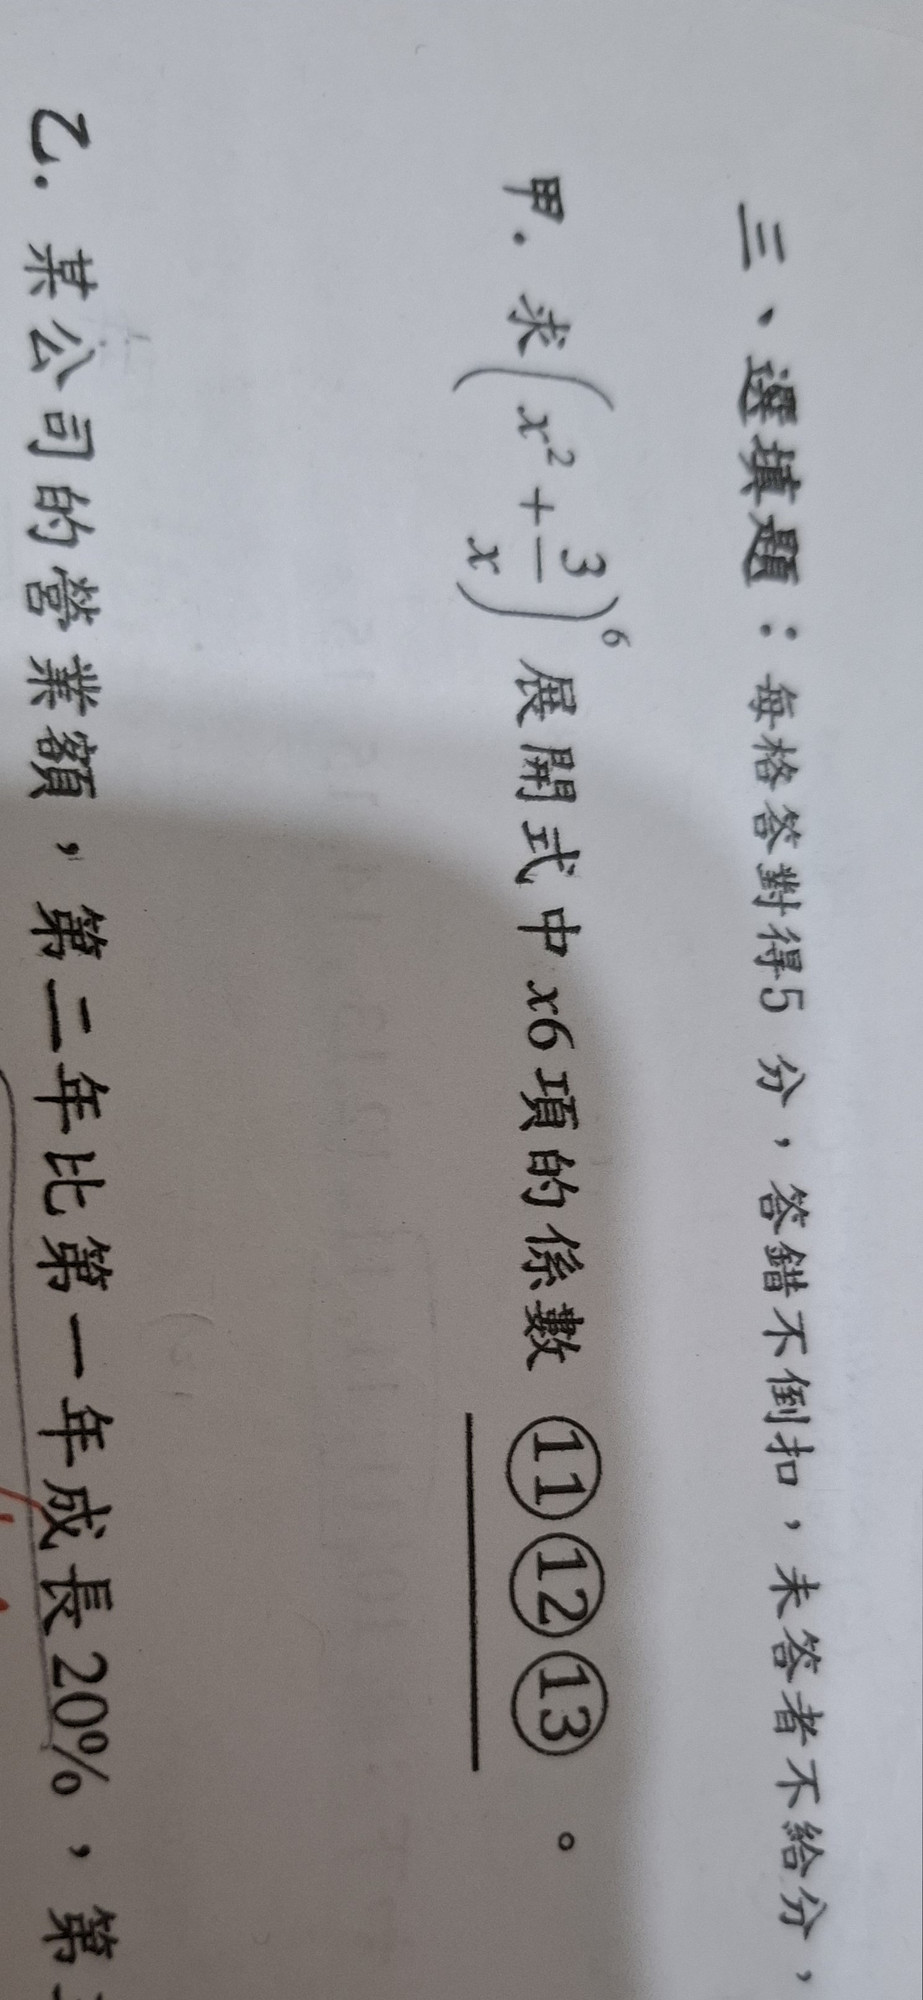 三、選填題：每格答對得5 分，答錯不倒扣，未答者不給分，
甲. 求(x² + 3/x)⁶ 展開式中 x6項的係數 ⑪⑫⑬ 。
乙. 某公司的營業額，第二年比第一年成長20%，第